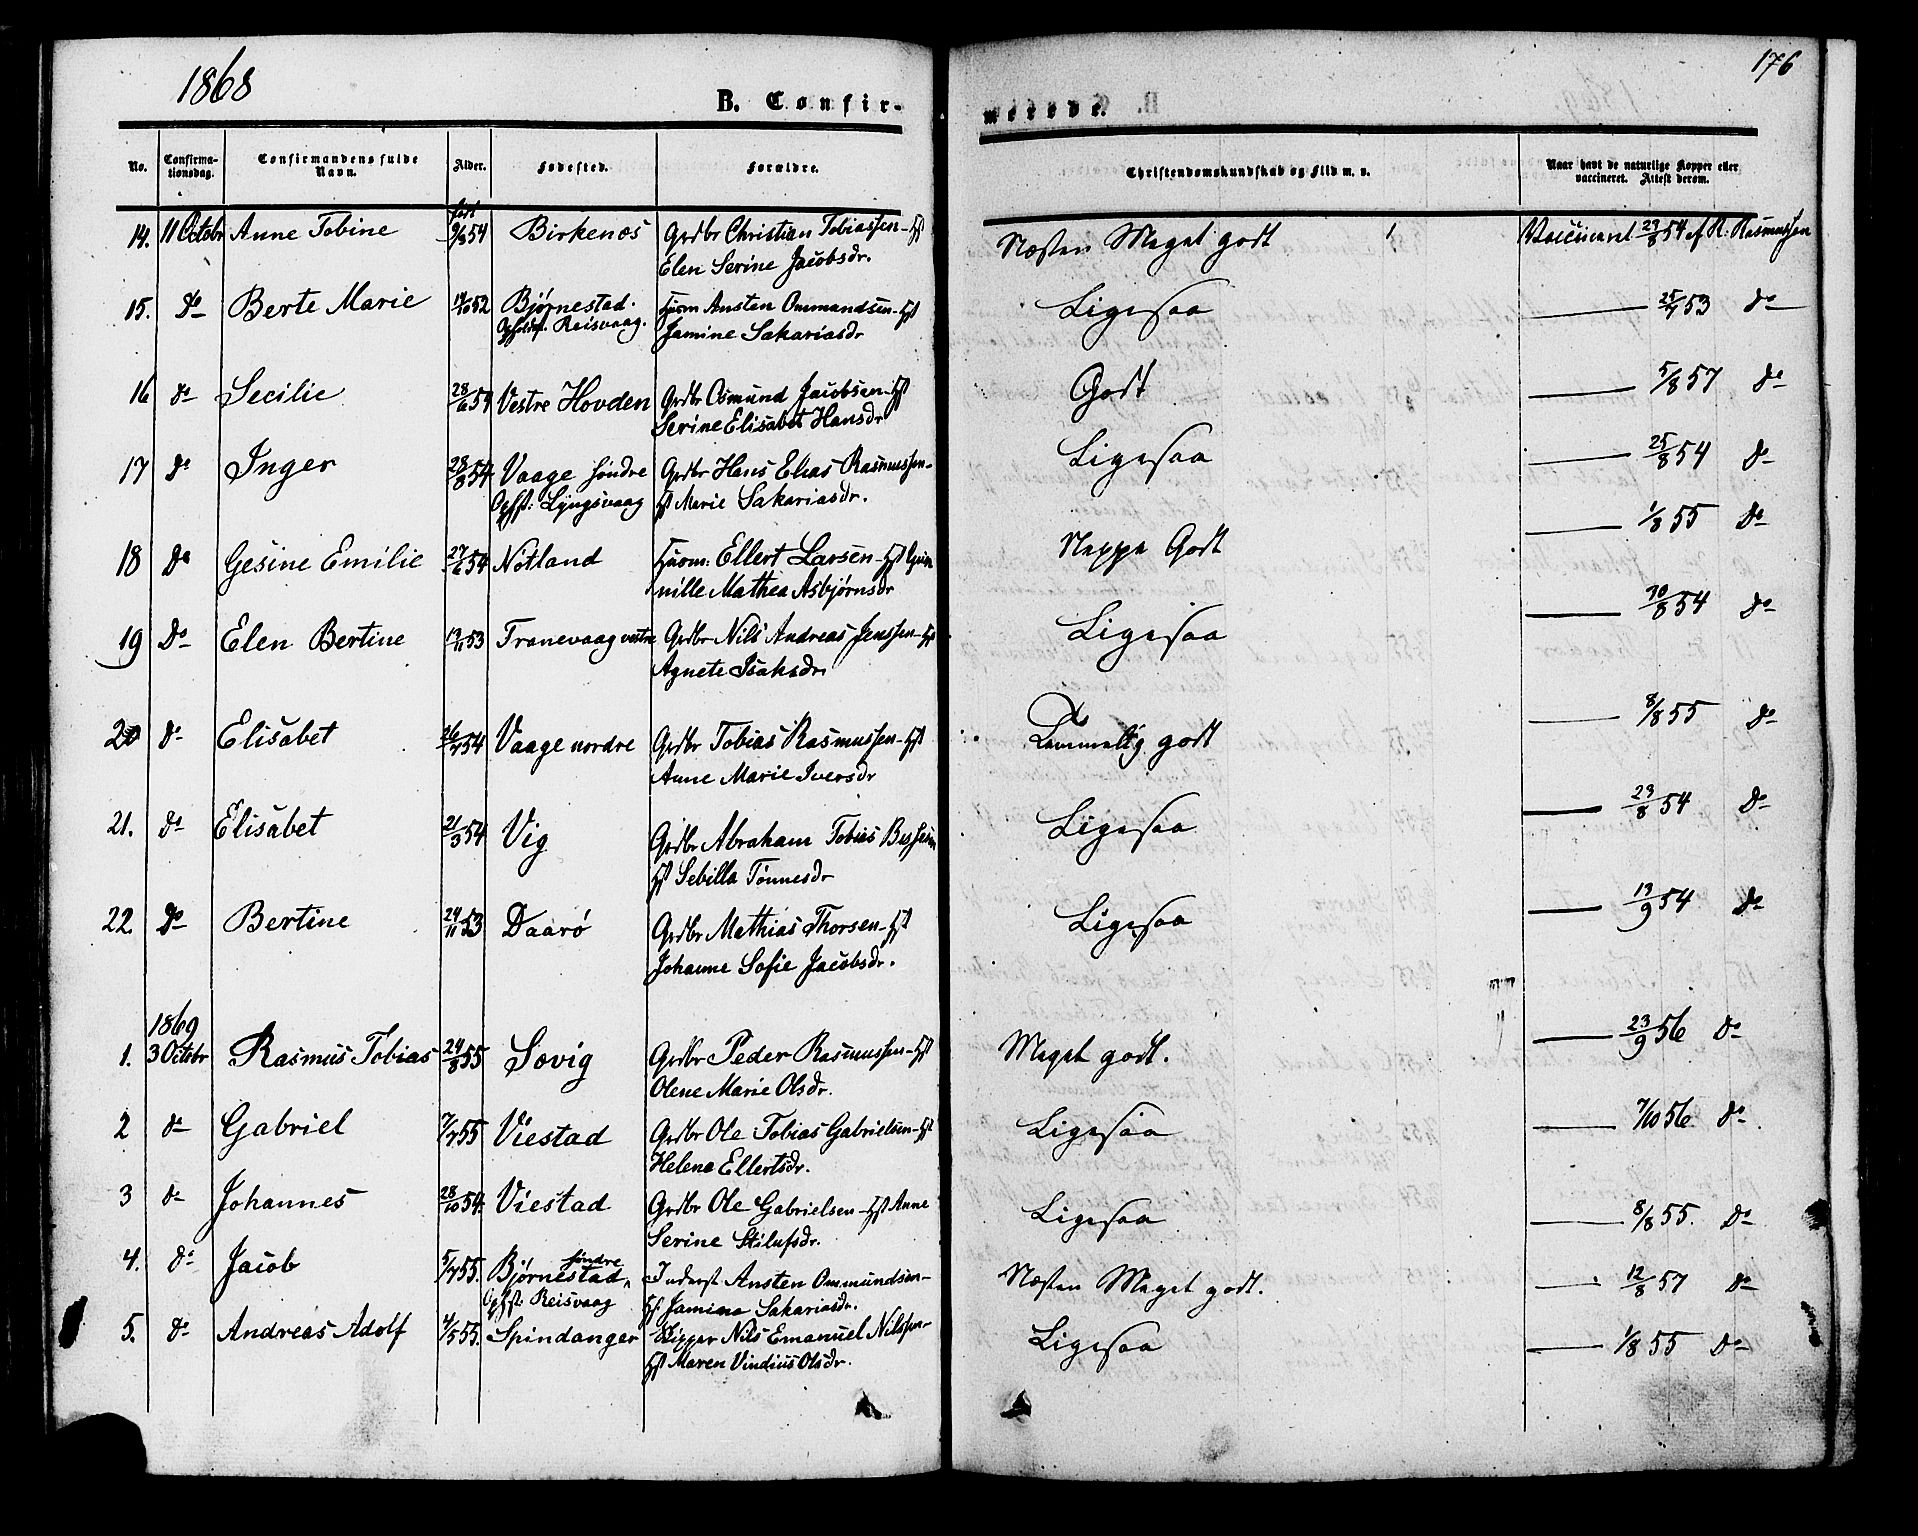 1868
176
B. Confir-
merede.
No.
Confirma-
tionsdag.
Confirmandens fulde
Navn.
Alder.
Fødested.
Forældre.
Christendomskundskab og Flid m. v.
Naar havt de naturlige Kopper eller
vaccineret. Attest derom.
14. 11 Octobr Anne Tobine født 9/8 54 Birkenæs Grdbr Christian Tobiassen - Hst Næsten Meget godt Vaccineret 23/8 54 af R. Rasmussen
Elen Serine Jacobsdr.
15. Do Berte Marie 14/10 52 Bjørnestad. Huusm Ansten Ommundsen - Hst Ligesaa 25/7 53 do
Opholdst. Reisvaag. Jamine Sakariasdr
16 do Secilie 28/6 54 Vestre Hovden Grdbr Osmund Jacobsen - Hst Godt 5/8 57 do
Serine Elisabet Hansdr
17 do Inger 28/8 54 Vaage søndre Grdbr Hans Elias Rasmussen - Ligesaa 25/8 54 do
Ophst: Lyngsvaag Hst Marie Sakariasdr.
18 Do Gesine Emilie 27/6 54 Nøtland Huusm: Ellert Larsen - Hst Gun Neppe Godt 1/8 55 Do
nille Mathea Asbjørnsdr
19 Do Elen Bertine 13/11 53 Tranevaag vestre Grdbr Nils Andreas Jenssen - Hst Ligesaa 30/8 54 do
Agnete Isaksdr.
20 do Elisabet 26/4 54 Vaage nordre Grdbr Tobias Rasmussen - Hst Temmelig godt 8/8 55 do
Anne Marie Iversdr
21. do Elisabet 21/3 54 Vig Grdbr Abraham Tobias Ligesaa 23/8 54 do
Hst Sebilla Tønnesdr
22 Do Bertine 24/11 53 Daarø Grdbr Mathias Thorsen - Hst Ligesaa 13/9 54 do
Johanne Sofie Jacobsdr.
1869
1. 3 Octobr Rasmus Tobias 24/8 55 Sævig Grdbr Peder Rasmussen - Hst Meget godt. 23/9 56 Do
Olene Marie Olsdr.
2 do Gabriel 7/7 55 Viestad Grdbr Ole Tobias Gabrielsen - Hst Ligesaa 7/10 56. do
Helene Ellertsdr.
3 do Johannes 28/10 54. Viestad Grdbr Ole Gabrielsen - Hst Anne Ligesaa 8/8 55. Do
Serine Stilufsdr.
4. do Jacob 5/7 55. Bjørnestad søndre Inderst Ansten Ommundsen - Næsten Meget godt. 12/8 57 do
Ophst: Reisvaag Hst Jamine Sakariasdr.
5. do Andreas Adolf 4/5 55. Spindanger Skipper Nils Emanuel Nilssen - Ligesaa 1/8 55 Do
Hst Maren Vindius Olsdr.